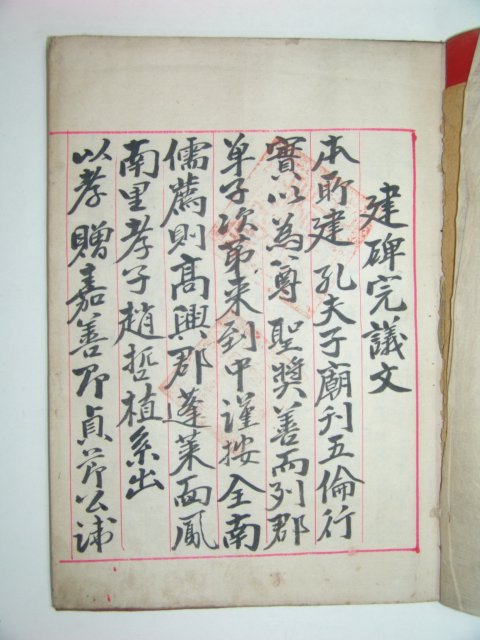 建碑完議文
本所建 孔夫子廟刊五倫行
實以為尊 聖奬善而列郡
單子次第来到中謹按全南
儒薦則高興郡蓬萊面鳳
南里孝子趙哲植系出
以孝 贈嘉善即貞節公諱